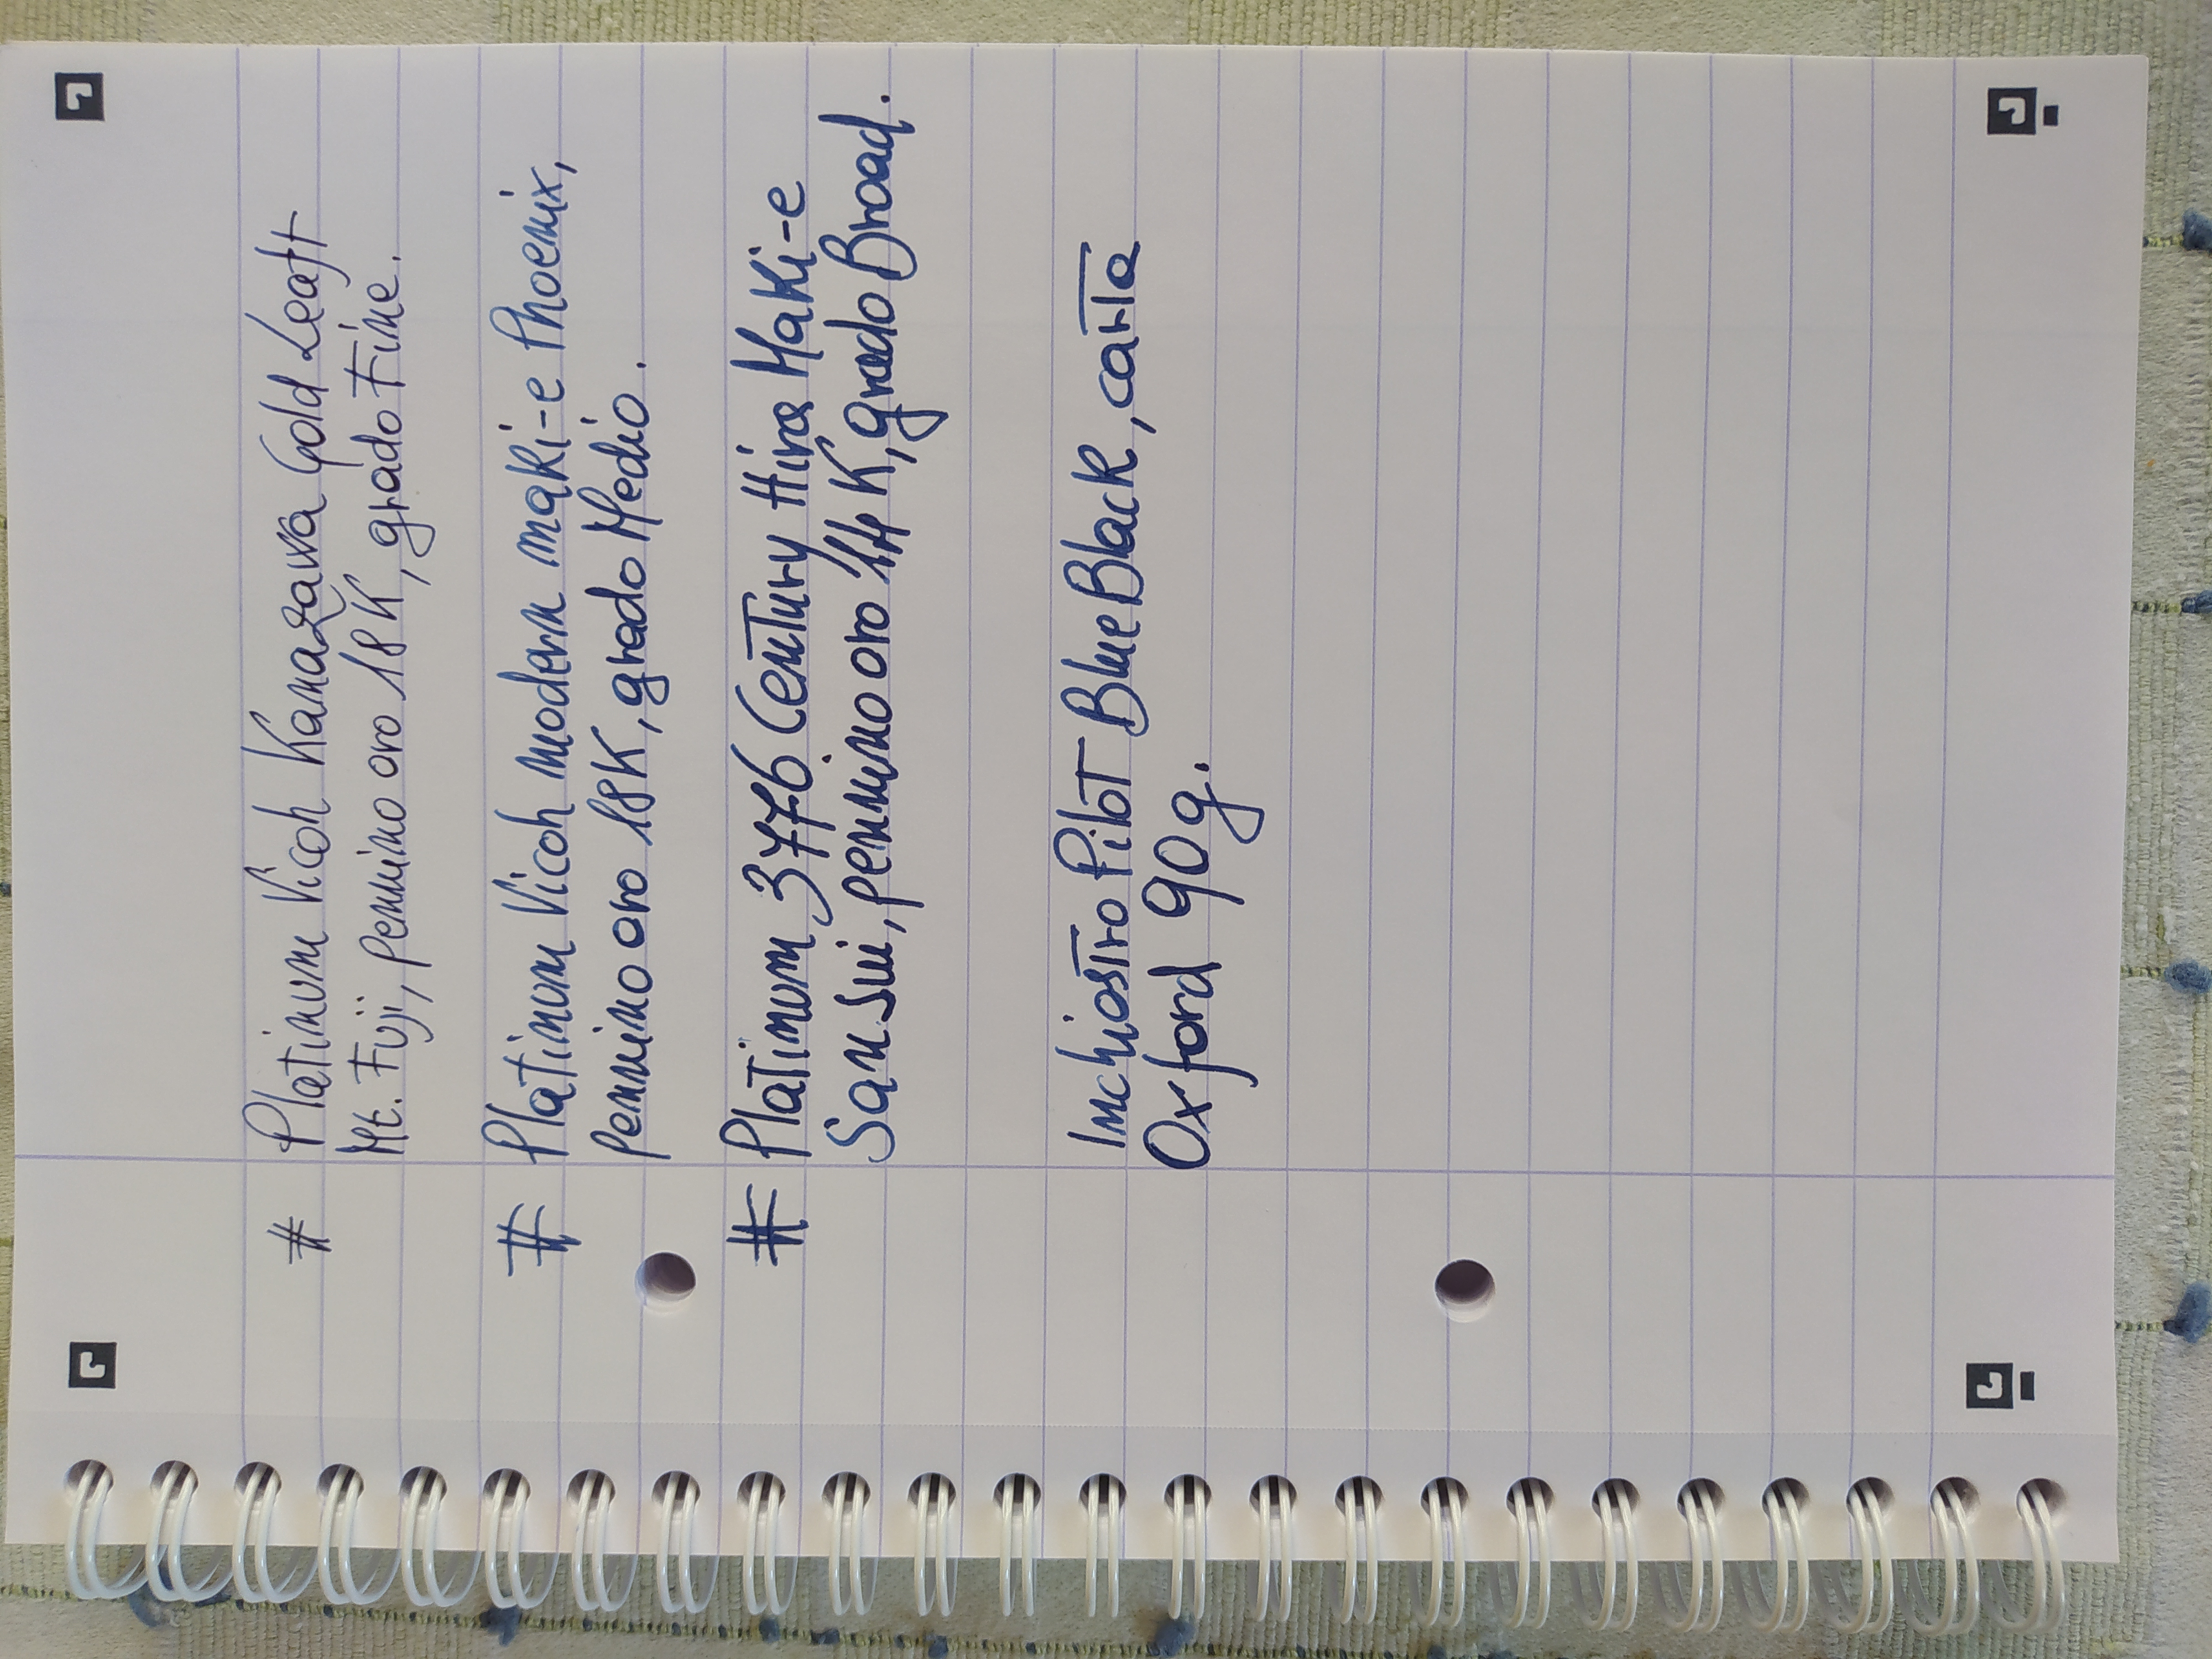 # Platinum Vicoh Kanazawa Gold Leaft
Mt. Fuji, pennino oro 18K, grado Fine.
# Platinum Vicoh modern maki-e Phoenix,
pennino oro 18K, grado Medio.
# Platinum 3776 Century Hira Maki-e
Sansui, pennino oro 14K, grado Broad.
Inchiostro Pilot Blue Black, carta
Oxford 90g.